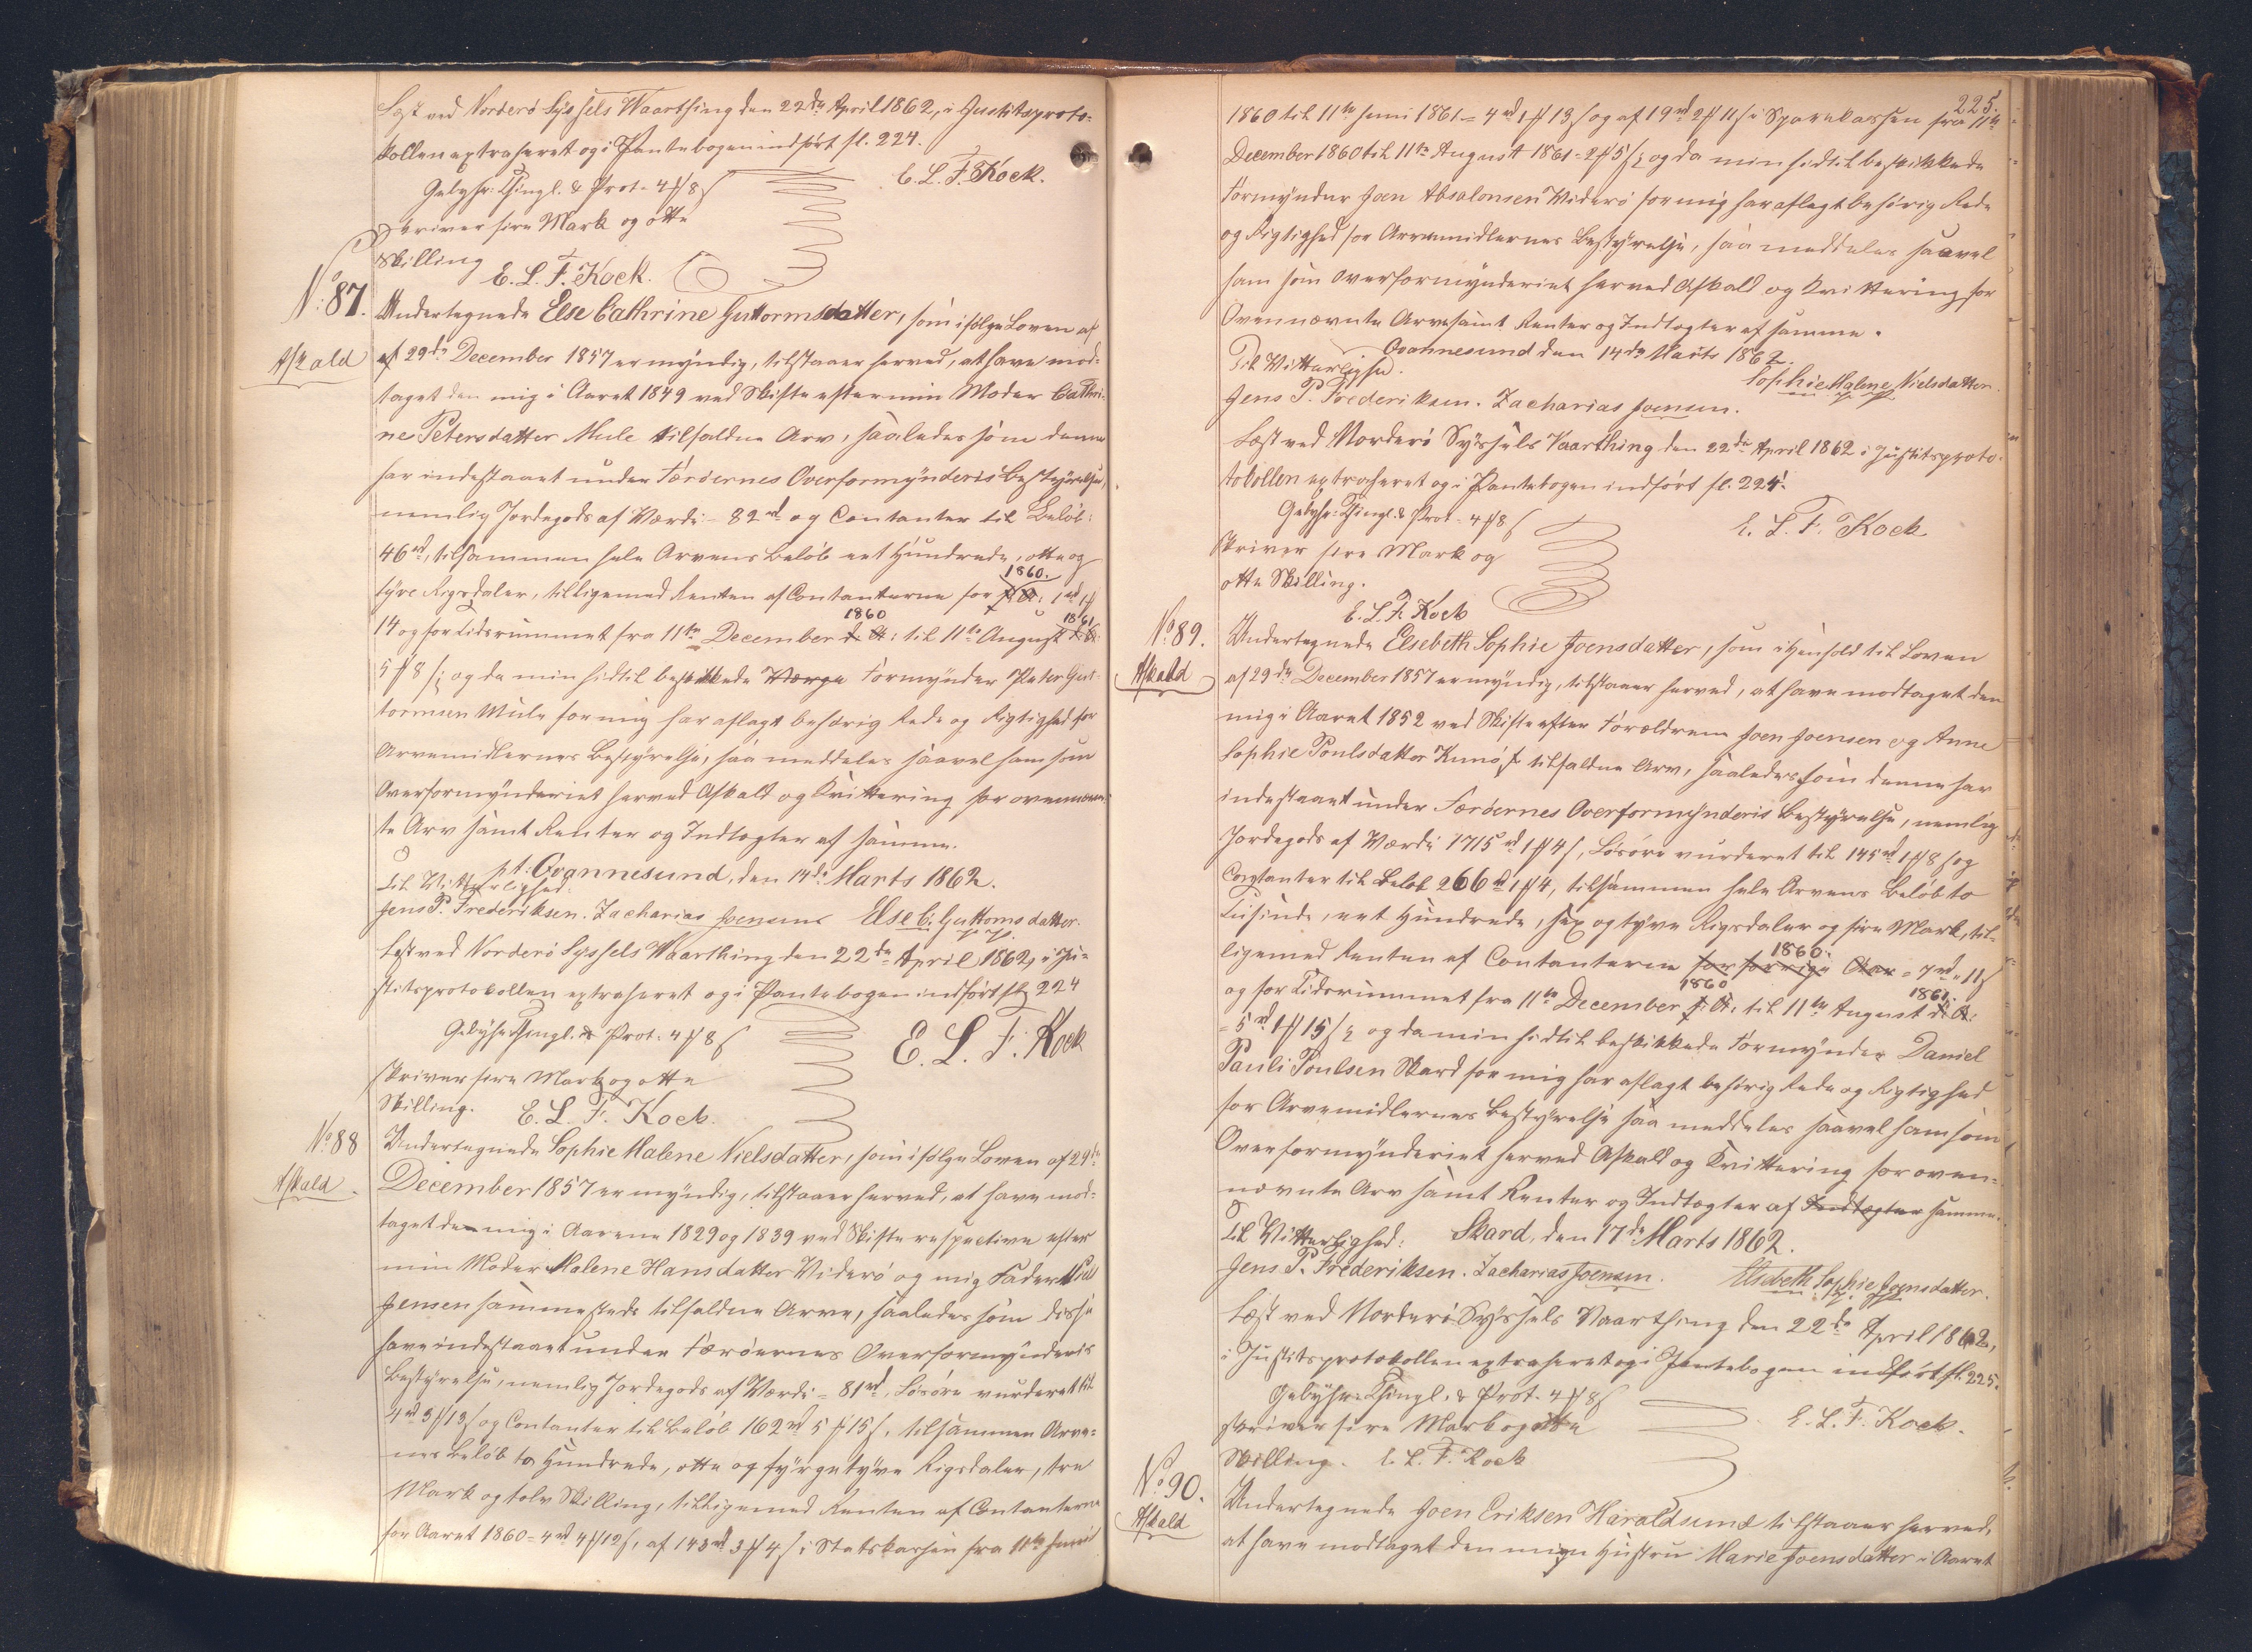 Læst ved Norderö Syssels Waarthing den 22de April 1862, i Justitsproto-
kollen extraheret og i Pantebogen indført fl. 224.
Gebyhr: Thingl. & Prot. 4 ℔ 8 ß
E. L. F. Kock.
skriver fire Mark og otte
Skilling
E. L. F. Kock.
No. 87.
Afkald
Undertegnede Else Cathrine Guttormsdatter, som ifølge Loven af
af 29de December 1857 er myndig, tilstaaer herved, at have mod-
taget den mig i Aaret 1849 ved Skifte efter min Moder Cathri-
ne Petersdatter Mule tilfaldne Arv, saaledes som denne
har indestaaet under Færöernes Overformynderis Bestyrelse,
nemlig Jordegods af Værdi - 82 rd og Contanter til Beløb:
46 rd, tilsammen hele Arvens Beløb eet Hundrede, otte og
1860.
tyve Rigsdaler, tilligemed Renten af Contanterne for f. A: 1 rd 1 ℔
1860
1861
14 og for Tidsrummet fra 11te December d. A: til 11te August d. A:
5 ℔ 8 ß; og da min hidtil beskikkede Værge Formynder Peter Gut-
tormsen Mule for mig har aflagt behørig Rede og Rigtighed for
Arvemidlernes Bestyrelse, saa meddeles saavel ham som
Overformynderiet herved Afkald og Kvittering for ovennævn-
te Arv samt Renter og Indtægter af samme.
pt: Qvannesund, den 14de Marts 1862.
Til Vitterlighed:
Jens P. Frederiksen. Zacharias Joensen Else C: Guttormsdatter.
Læst ved Norderö Syssels Waarthing den 22de April 1862, i Ju-
stitsprotokollen extraheret og i Pantebogen indført fl. 224
Gebyhr Thingl. & Prot. 4 ℔ 8 ß
E. L. F. Kock
skriver fire Mark og otte
Skilling. E. L. F. Kock.
No. 88
Afkald.
Undertegnede Sophie Malene Nielsdatter, som ifølge Loven af 29de
December 1857 er myndig, tilstaaer herved, at have mod-
taget den mig i Aarene 1829 og 1839 ved Skifte respective efter
min Moder Malene Hansdatter Viderö og mig Fader
Jensen sammesteds tilfaldne Arve, saaledes som disse
have indestaaet under Færöernes Overformynderis
Bestyrelse, nemlig Jordegods af Værdi = 81 rd, Løsøre vurderet til
4 rd 3 ℔ 13 ß og Contanter til Beløb 162 rd 5 ℔ 15 ß, tilsammen Arve-
nes Beløb to Hundrede, otte og fyrgetyve Rigsdaler, tre
Mark og tolv Skilling, tilligemed Renten af Contanterne
for Aaret 1860 = 4 rd 4 ℔ 12 ß, af 143 rd 3 ℔ 4 ß i Statskassen fra 11te Juni
225.
1860 til 11te Juni 1861 = 4 rd 1 ℔ 13 ß og af 19 rd 2 ℔ 11 ß i Sparekassen fra 11te
December 1860 til 11te August 1861 = 2 ℔ 5 ß; og da min hidtil beskikkede
Formynder Joen Absalonsen Widerö for mig har aflagt behørig Rede
og Rigtighed for Arvemidlernes Bestyrelse, saa meddeles saavel
ham som Overformynderiet herved Afkald og Kvittering for
Ovennævnte Arve samt Renter og Indtægter af samme.
Qvannesund den 14de Marts 1862.
Til Vitterlighed.
Sophie Malene Nielsdatter.
Jens P. Frederiksen. Zacharias Joensen.
Læst ved Norderö Syssels Vaarthing den 22de April 1862 i Justitsproto-
tokollen extraheret og i Pantebogen indført fl. 224.
Gebyhr: Thingl. & Prot. 4 ℔ 8 ß
E. L. F. Kock
skriver fire Mark og
otte Skilling.
E. L. F. Kock
No. 89.
Afkald
Undertegnede Elsebeth Sophie Joensdatter, som i Henhold til Loven
af 29de December 1857 er myndig, tilstaaer herved, at have modtaget den
mig i Aaret 1852 ved Skifte efter Forældrene Joen Joensen og Anne
Sophie Poulsdatter Kunö, tilfaldne Arv, saaledes som denne har
indestaaet under Færöernes Overformynderis Bestyrelse, nemlig
Jordegods af Værdi 1715 rd 1 ℔ 4 ß, Løsøre vurderet til 145 rd 1 ℔ 8 ß og
Contanter til Beløb 266 rd 1 ℔ 4, tilsammen hele Arvens Beløb to
Tusinde, eet Hundrede, sex og tyve Rigsdaler og fire Mark, til-
1860.
ligemed Renten af Contanterne for forrige Aar = 7 rd " 11 ß
1860
1861.
og for Tidsrummet fra 11te December f. A. til 11te August d. A:
= 5 rd 1 ℔ 15 ß; og da min hidtil beskikkede Formynder Daniel
Pauli Poulsen Skard for mig har aflagt behørig Rede og Rigtighed
for Arvemidlernes Bestyrelse saa meddeles saavel ham som
Overformynderiet herved Afkald og Kvittering for oven-
nævnte Arv samt Renter og Indtægter af Indtægter samme.
Til Vitterlighed: Skard, den 17de Marts 1862.
Jens P. Frederiksen. Zacharias Joensen. Elsebeth Sophie Joensdatter.
Læst ved Norderö Syssels Vaarthing den 22de April 1862,
i Justitsprotokollen extraheret og i Pantebogen indført fl. 225.
Gebyhr: Thingl. & Prot. 4 ℔ 8 ß
E. L. F. Kock.
skriver fire Mark og otte
Skilling. E. L. F. Kock
No. 90.
Afkald
Undertegnede Joen Eriksen Haraldsund tilstaaer herved,
at have modtaget den min Hustru Marie Joensdatter i Aaret